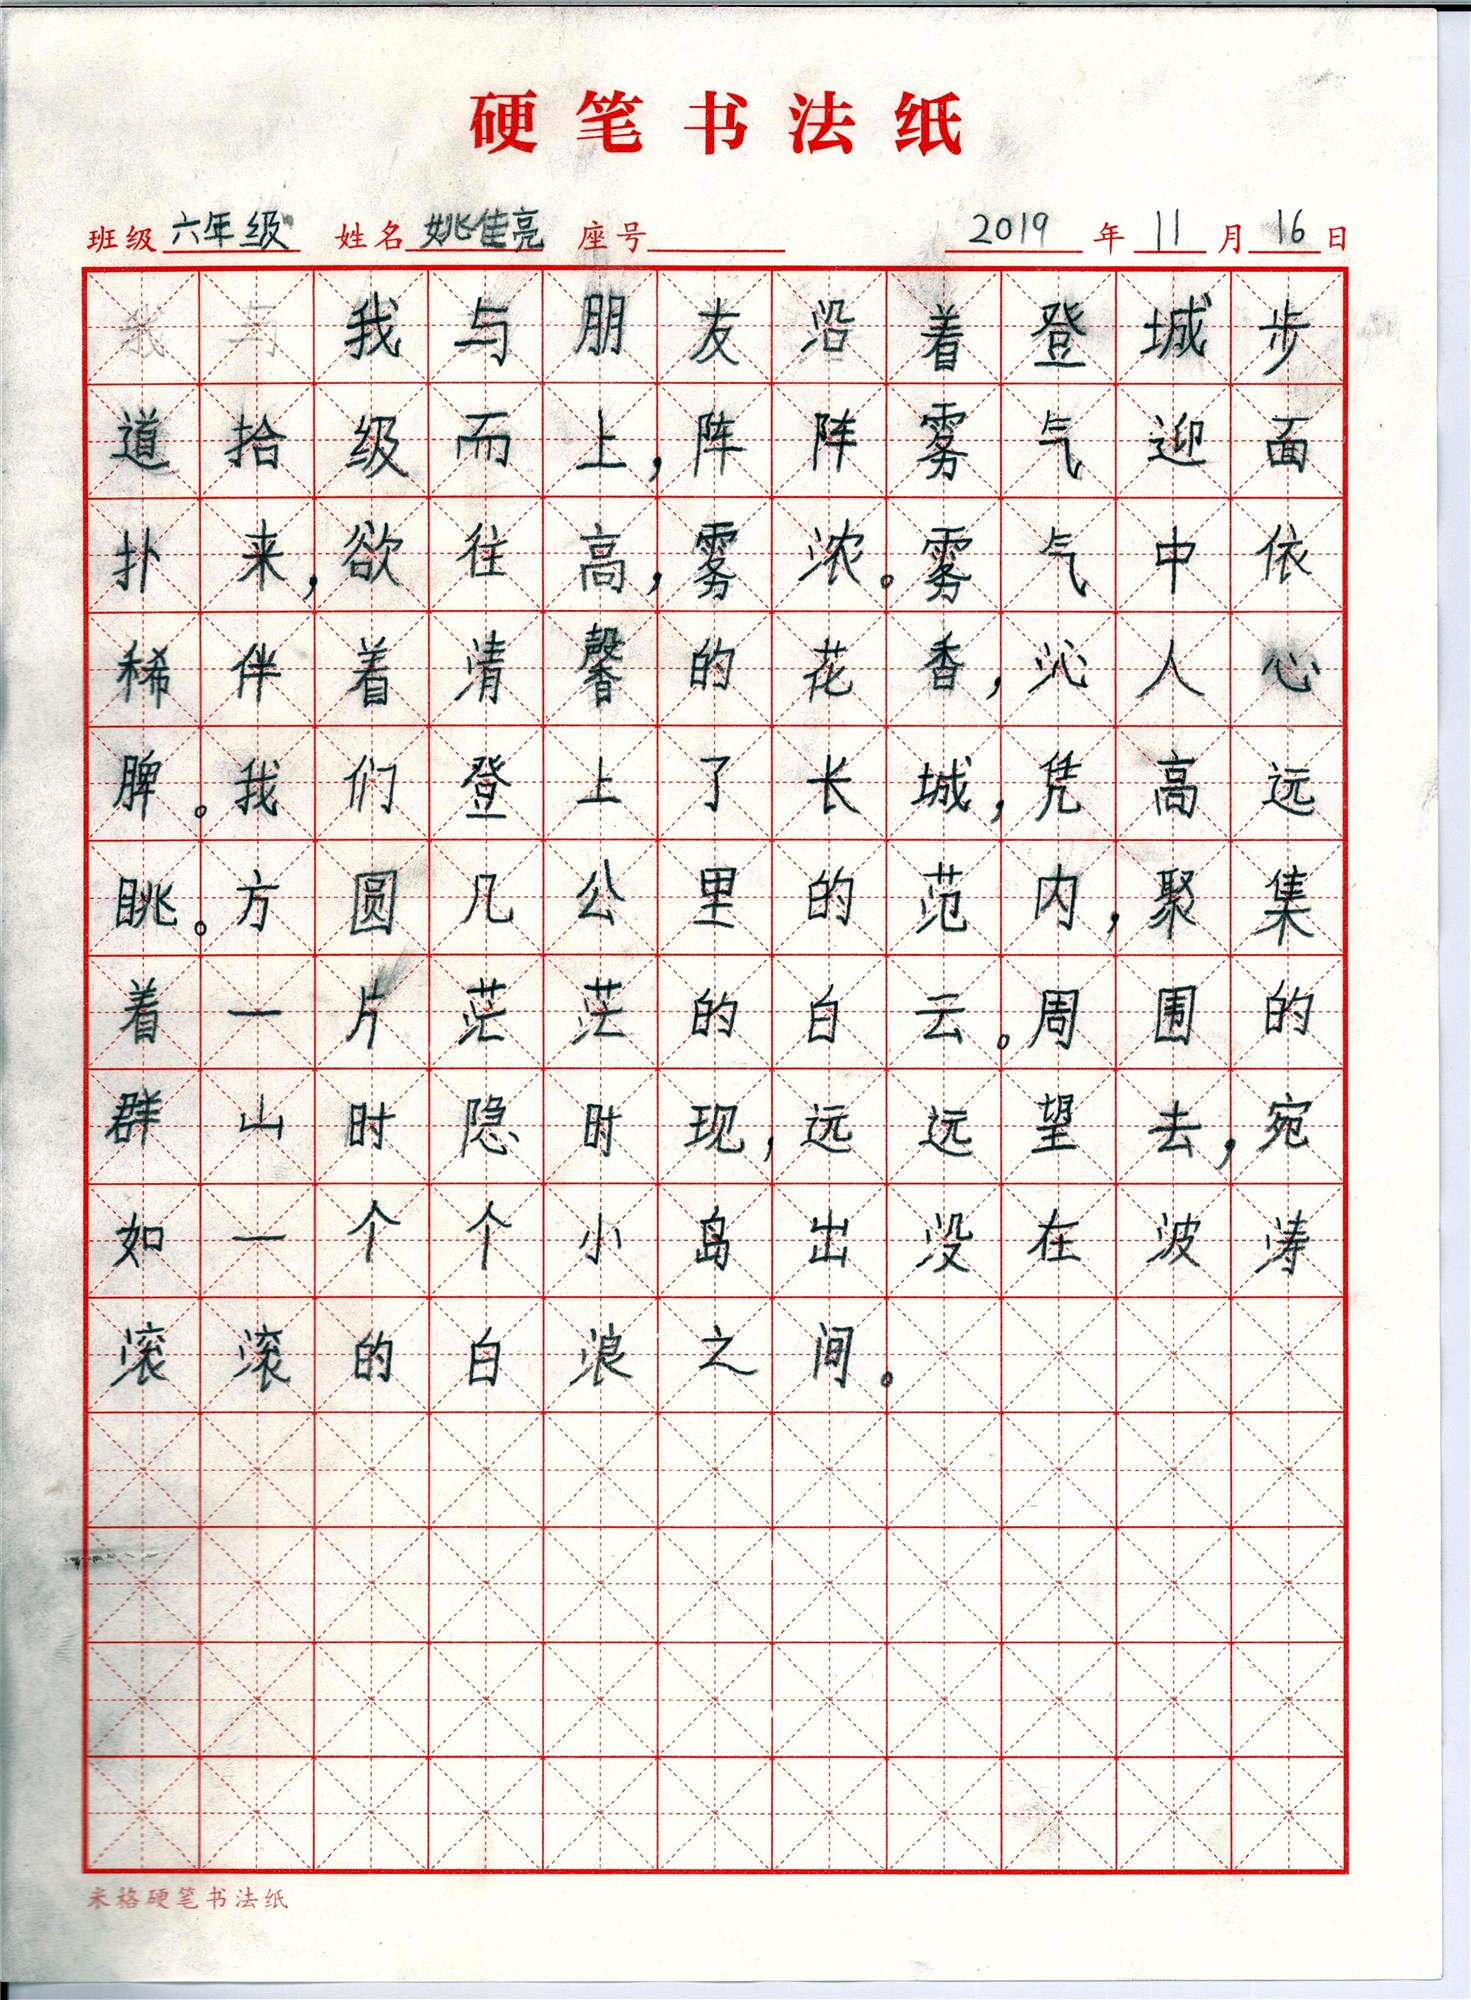 硬笔书法纸
班级 六年级 姓名 姚佳亮 座号 2019 年 11 月 16 日
我与朋友沿着登城步
道拾级而上,阵阵雾气迎面
扑来,欲往高,雾浓。雾气中依
稀伴着清馨的花香,沁人心
脾。我们登上了长城,凭高远
眺。方圆几公里的范内,聚集
着一片茫茫的白云。周围的
群山时隐时现,远远望去,宛
如一个个小岛出没在波涛
滚滚的白浪之间。
米格硬笔书法纸